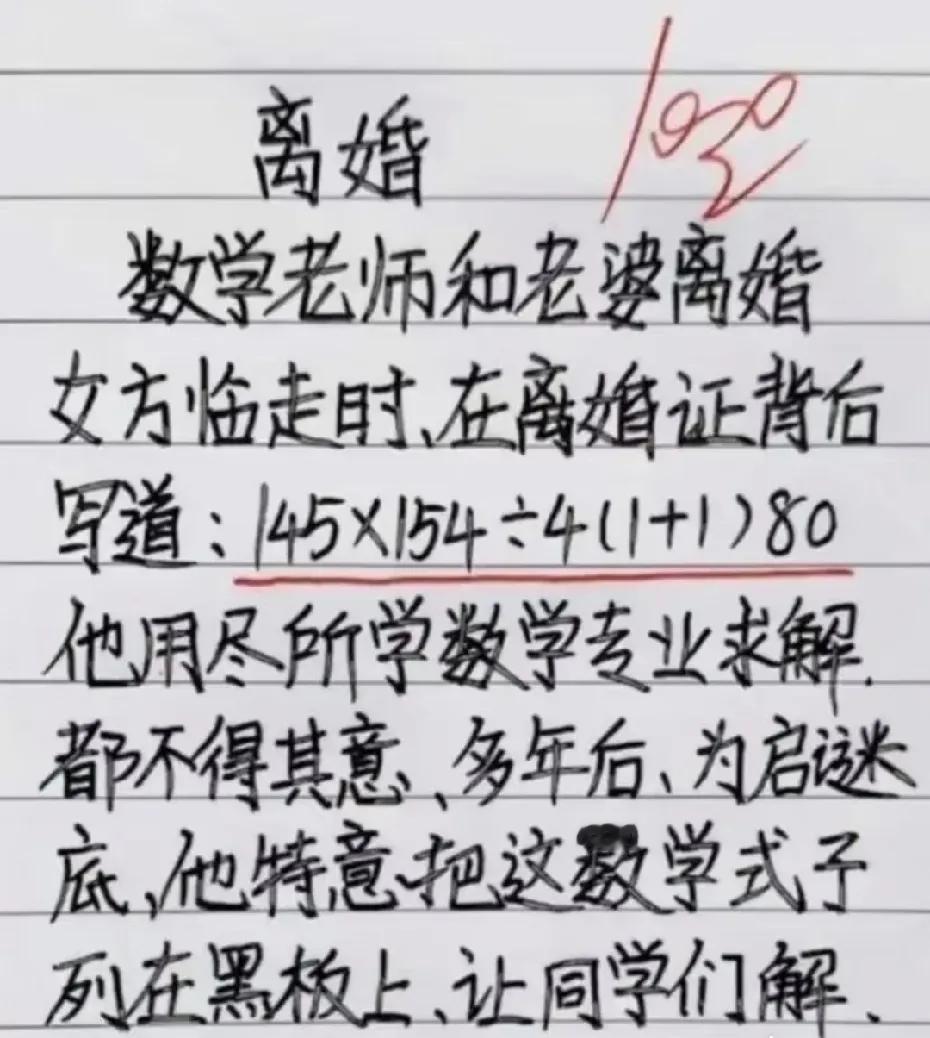 离婚
100
数学老师和老婆离婚
女方临走时、在离婚证背后
写道:145×154÷4(1+1)80
他用尽所学数学专业求解.
都不得其意、多年后、为启谜
底,他特意把这数学式子
列在黑板上、让同学们解、